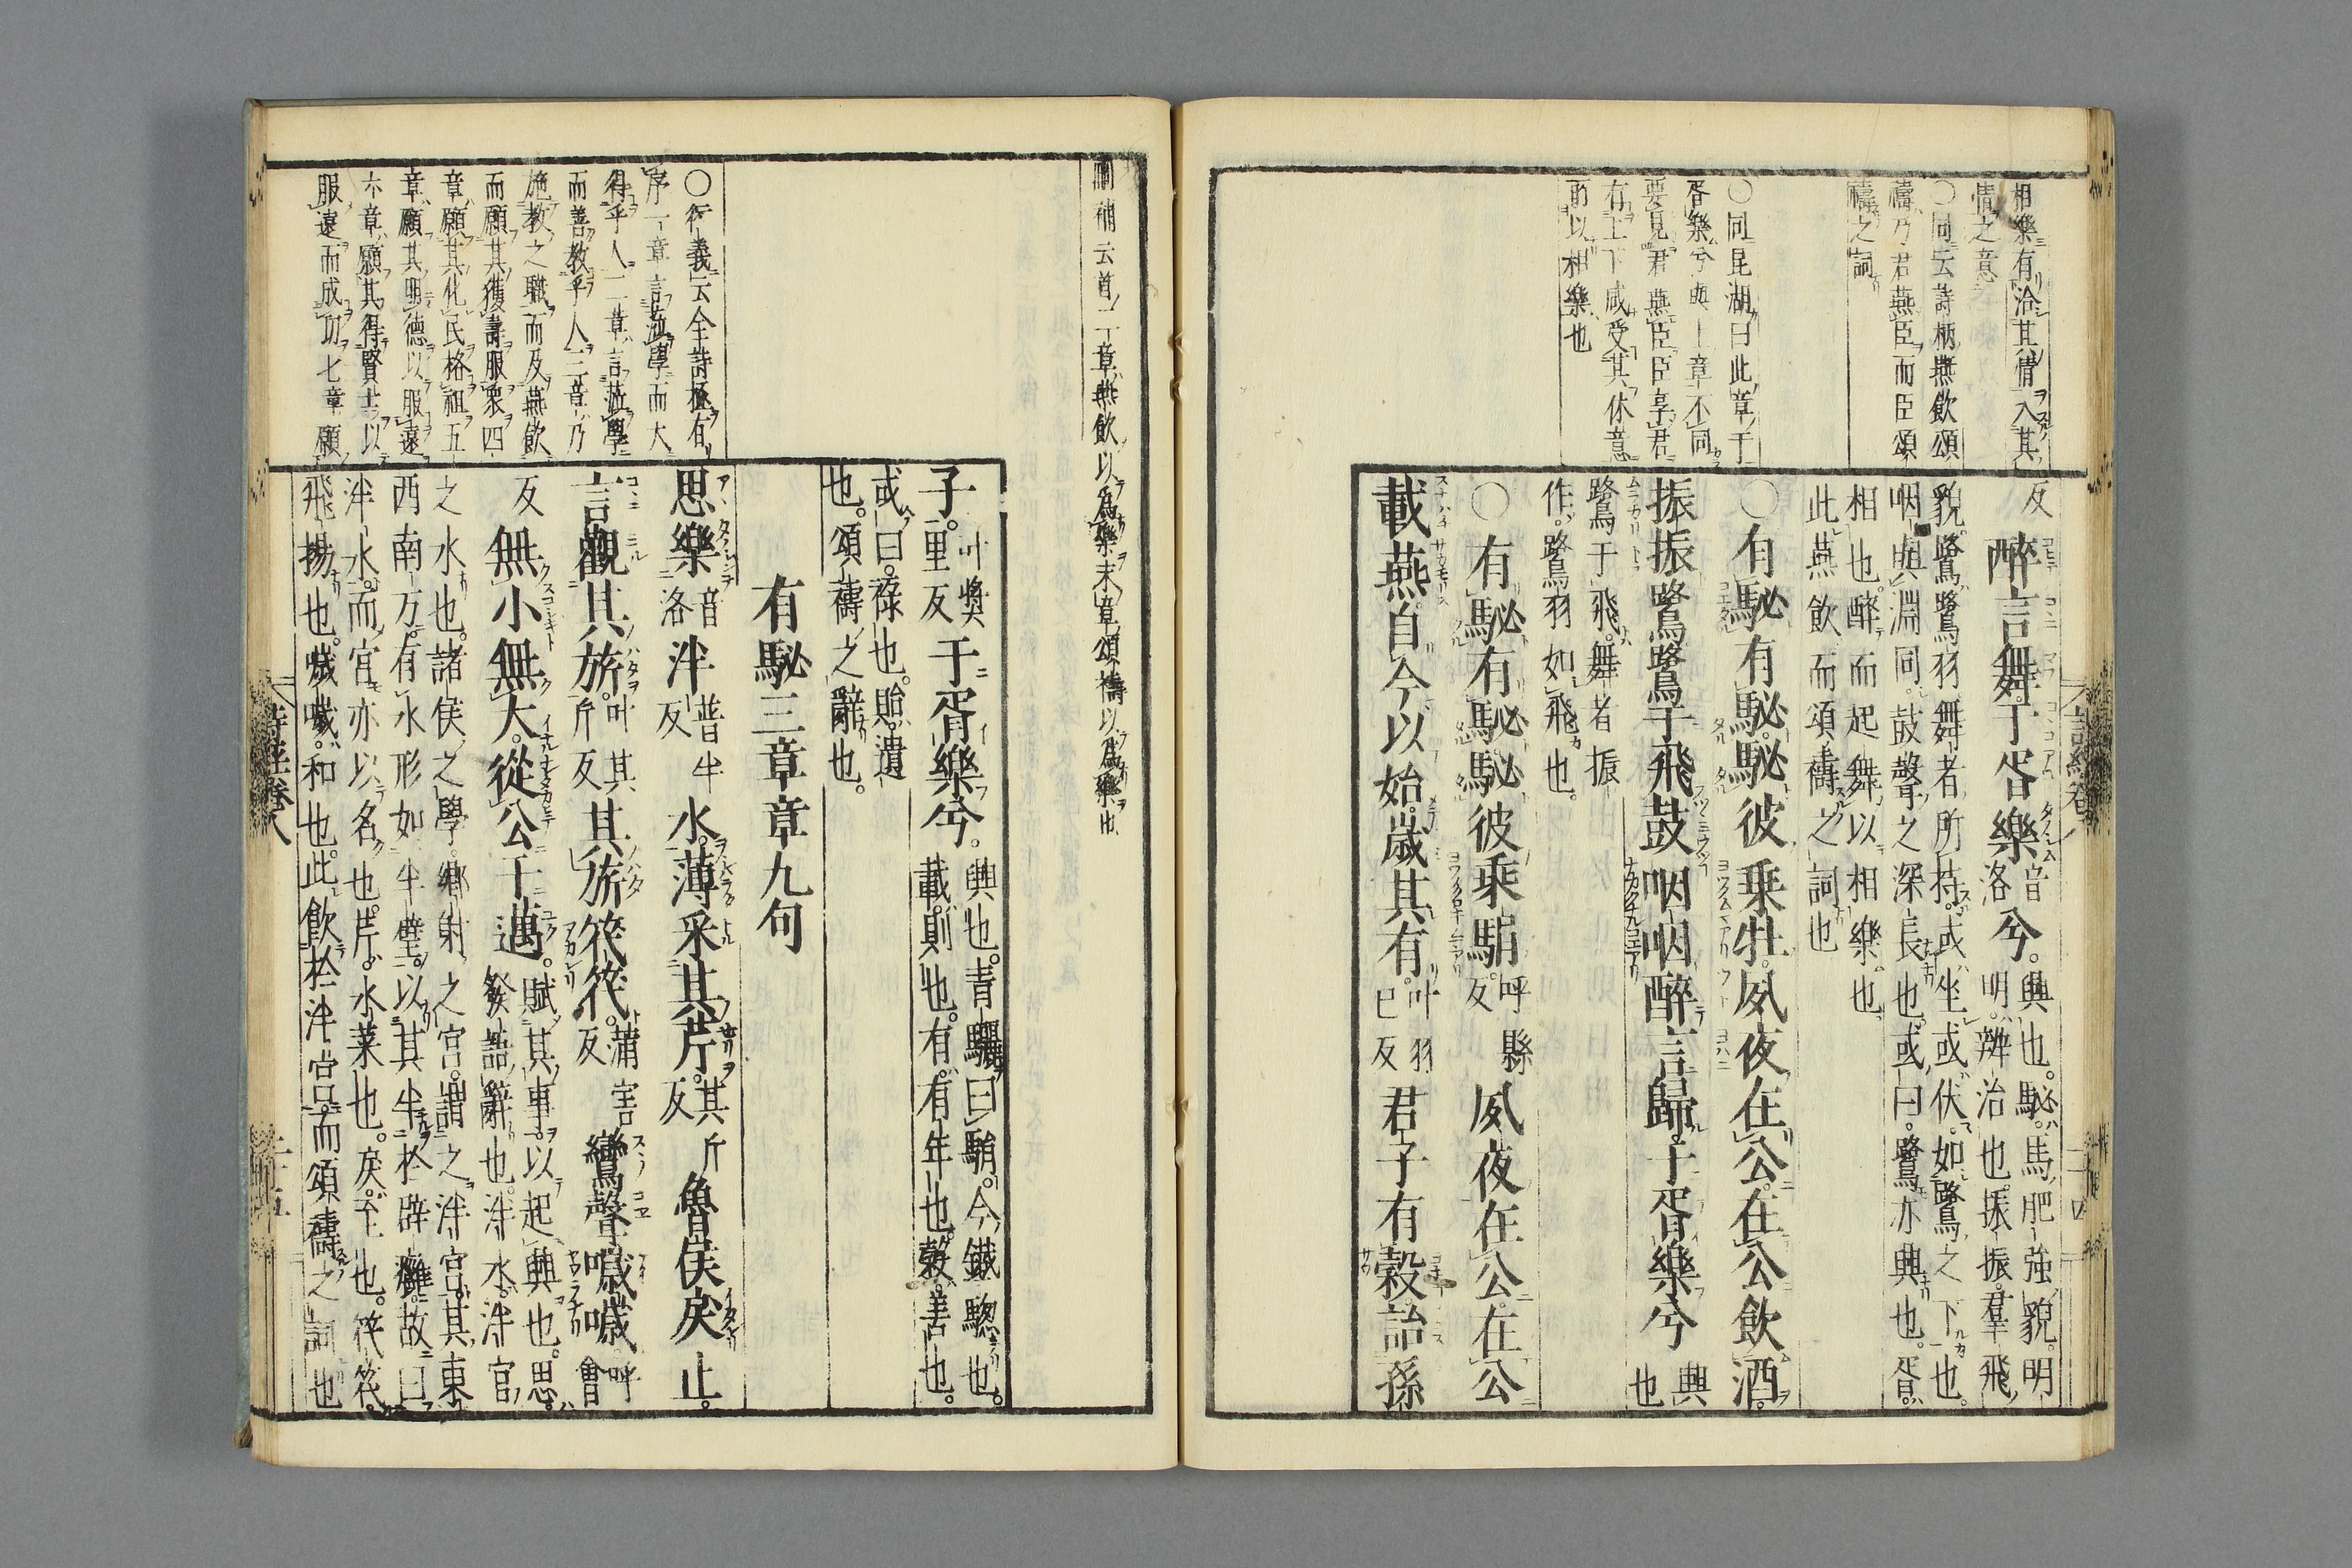 相樂有洽其情入其
情之意
○同云詩柄燕飲頌
禱乃君燕臣而臣頌
禱之詞
○同昆湖曰此章于
胥樂兮與上章不同
要見君燕臣臣享君
有上下咸受其休意
所以相樂也
反醉言舞于胥樂音洛兮興也駜馬肥強貌明
明辨治也振振羣飛
貌鷺鷺羽舞者所持或坐或伏如鷺之下也
咽與淵同鼓聲之深長也或曰鷺亦興也胥
相也醉而起舞以相樂也
此燕飲而頌禱之詞也
○有駜有駜駜彼乘牡夙夜在公在公飲酒
振振鷺鷺于飛鼓咽咽醉言歸于胥樂兮興也
鷺于飛舞者振
作鷺羽如飛也
○有駜有駜駜彼乘駽呼縣反夙夜在公在公
載燕自今以始歲其有叶羽已反君子有穀詒孫
詩經卷八
二十四
補云首二章燕飲以爲樂末章頌禱以爲樂也
○衍義云全詩極有
序一章言泣學而大
得乎人二章言泣學
而善教乎人三章乃
施教之職而及燕飲
而願其獲壽服衆四
章願其化民格祖五
章願其明德以服遠
六章願其得賢士以
服遠而成功七章願
子叶奬里反于胥樂兮興也青驪曰駽今鐵驄也
載則也有有年也穀善也
或曰祿也貽遺
也頌禱之辭也
有駜三章章九句
思樂音洛泮普半反水薄采其芹其斤反魯侯戾止
言觀其旂叶其斤反其旂筏筏蒲害反鸞聲噦噦呼會
反無小無大從公于邁賦其事以起興也思
發語辭也泮水泮宮
之水也諸侯之學鄉射之宮謂之泮宮其東
西南方有水形如半璧以其半於辟廱故曰
泮水而宮亦以名也芹水菜也戾至也筏筏
飛揚也噦噦和也此飲於泮宮而頌禱之詞也
詩經卷八
二十五